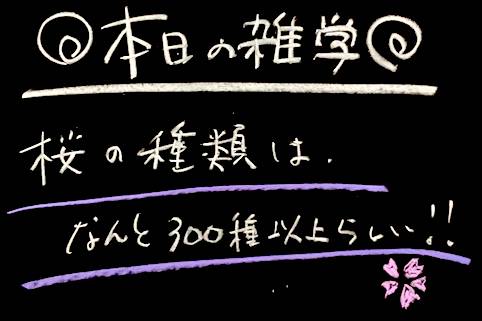 本日の雑学
桜の種類は、
なんと300種以上らしい!!